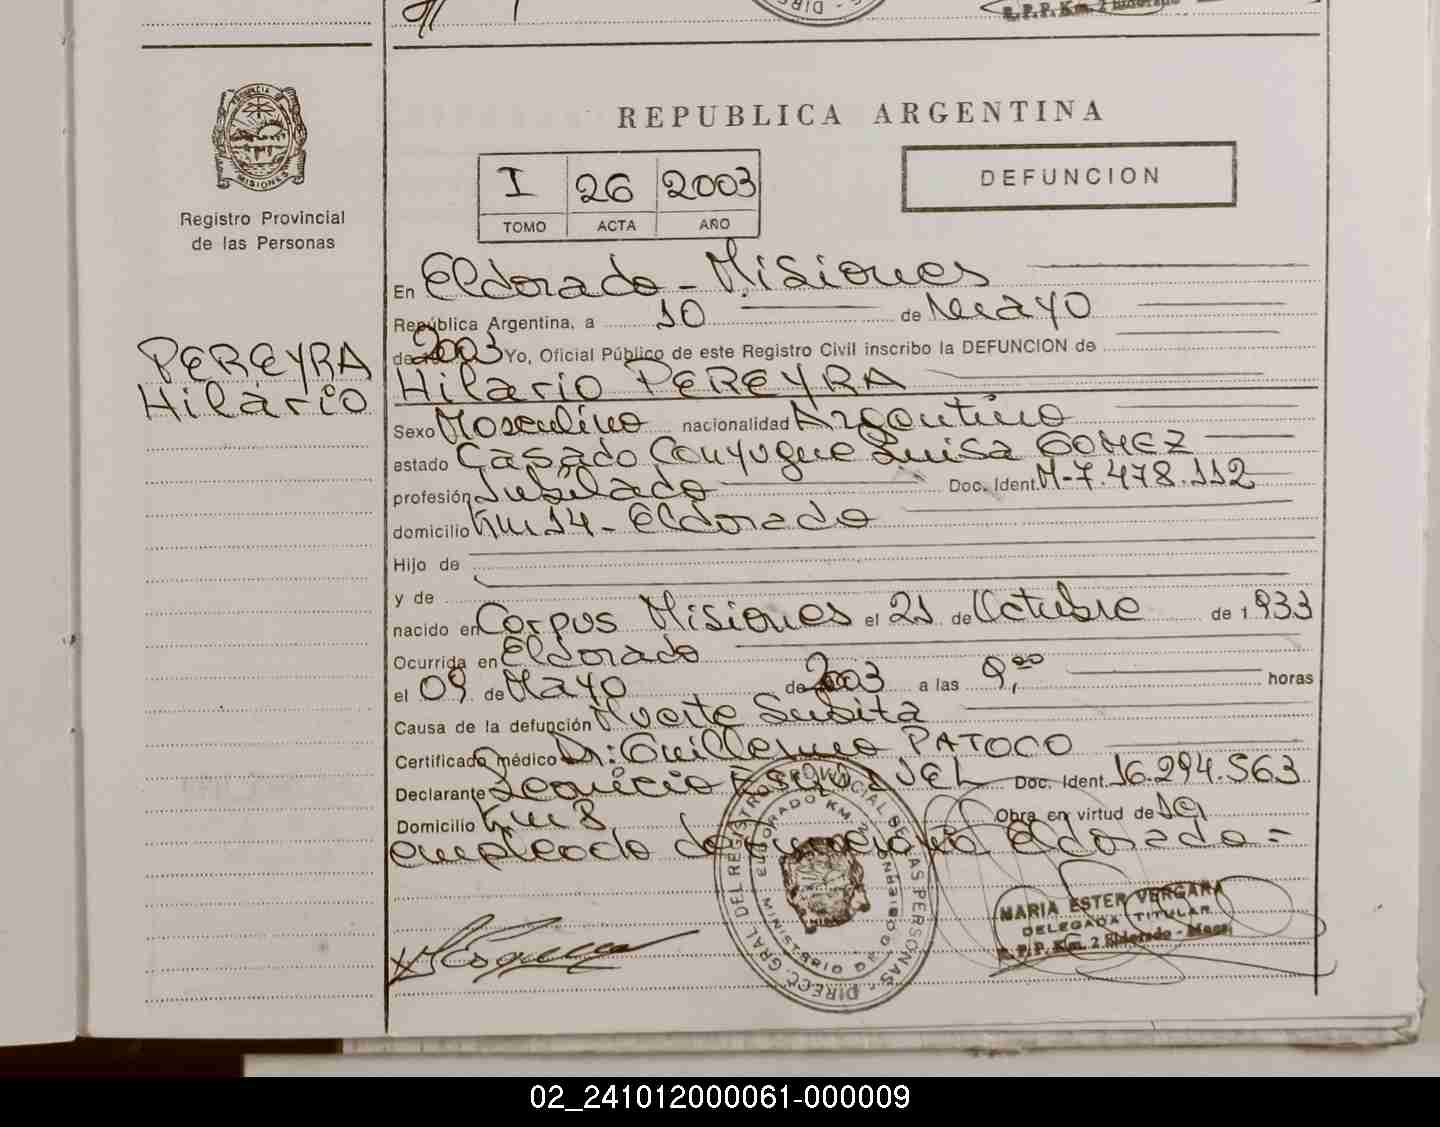 R.P.P. Km. 2 Eldorado
PROVINCIA DE
MISIONES
Registro Provincial
de las Personas
PEREYRA
Hilario
REPUBLICA ARGENTINA
I 26 2003
TOMO ACTA AÑO
DEFUNCION
En Eldorado - Misiones
República Argentina, a 10 de Mayo
de 2003 Yo, Oficial Público de este Registro Civil inscribo la DEFUNCION de
Hilario PEREYRA
Sexo Masculino nacionalidad Argentino
estado Casado Conyugue Luisa GOMEZ
profesión Jubilado Doc. Ident. M-7.478.112
domicilio Km 14 - Eldorado
Hijo de
y de
nacido en Corpus Misiones el 21 de Octubre de 1933
Ocurrida en Eldorado
el 09 de Mayo de 2003 a las 9,00 horas
Causa de la defunción Muerte Subita
Certificado médico Dr: Guillermo PATOCO
Declarante Leoncio ESQUIVEL Doc. Ident. 16.294.563
Domicilio Km 8 Obra en virtud de
empleado de funeraria Eldorado =
DIRECC. GRAL DEL REGISTRO PROVINCIAL DE LAS PERSONAS
ELDORADO KM. 2
MINISTERIO DE GOBIERNO
MARIA ESTER VERGARA
DELEGADA TITULAR
R.P.P. Km. 2 Eldorado - Mnes.
02_241012000061-000009